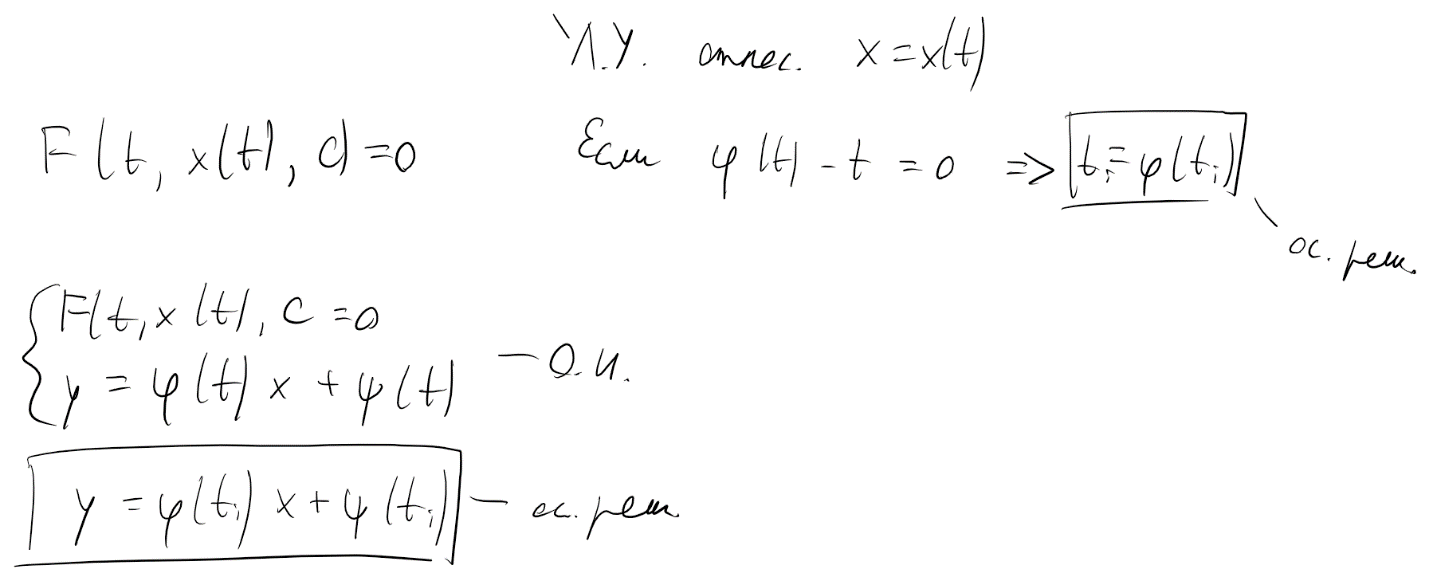 Л.У. относ. x = x(t)
F(t, x(t), c) = 0
Если φ(t) - t = 0 => tᵢ = φ(tᵢ)
ос. реш.
{ F(t, x(t), c = 0
y = φ(t) x + ψ(t) — О.И.
y = φ(tᵢ) x + ψ(tᵢ) — ос. реш.